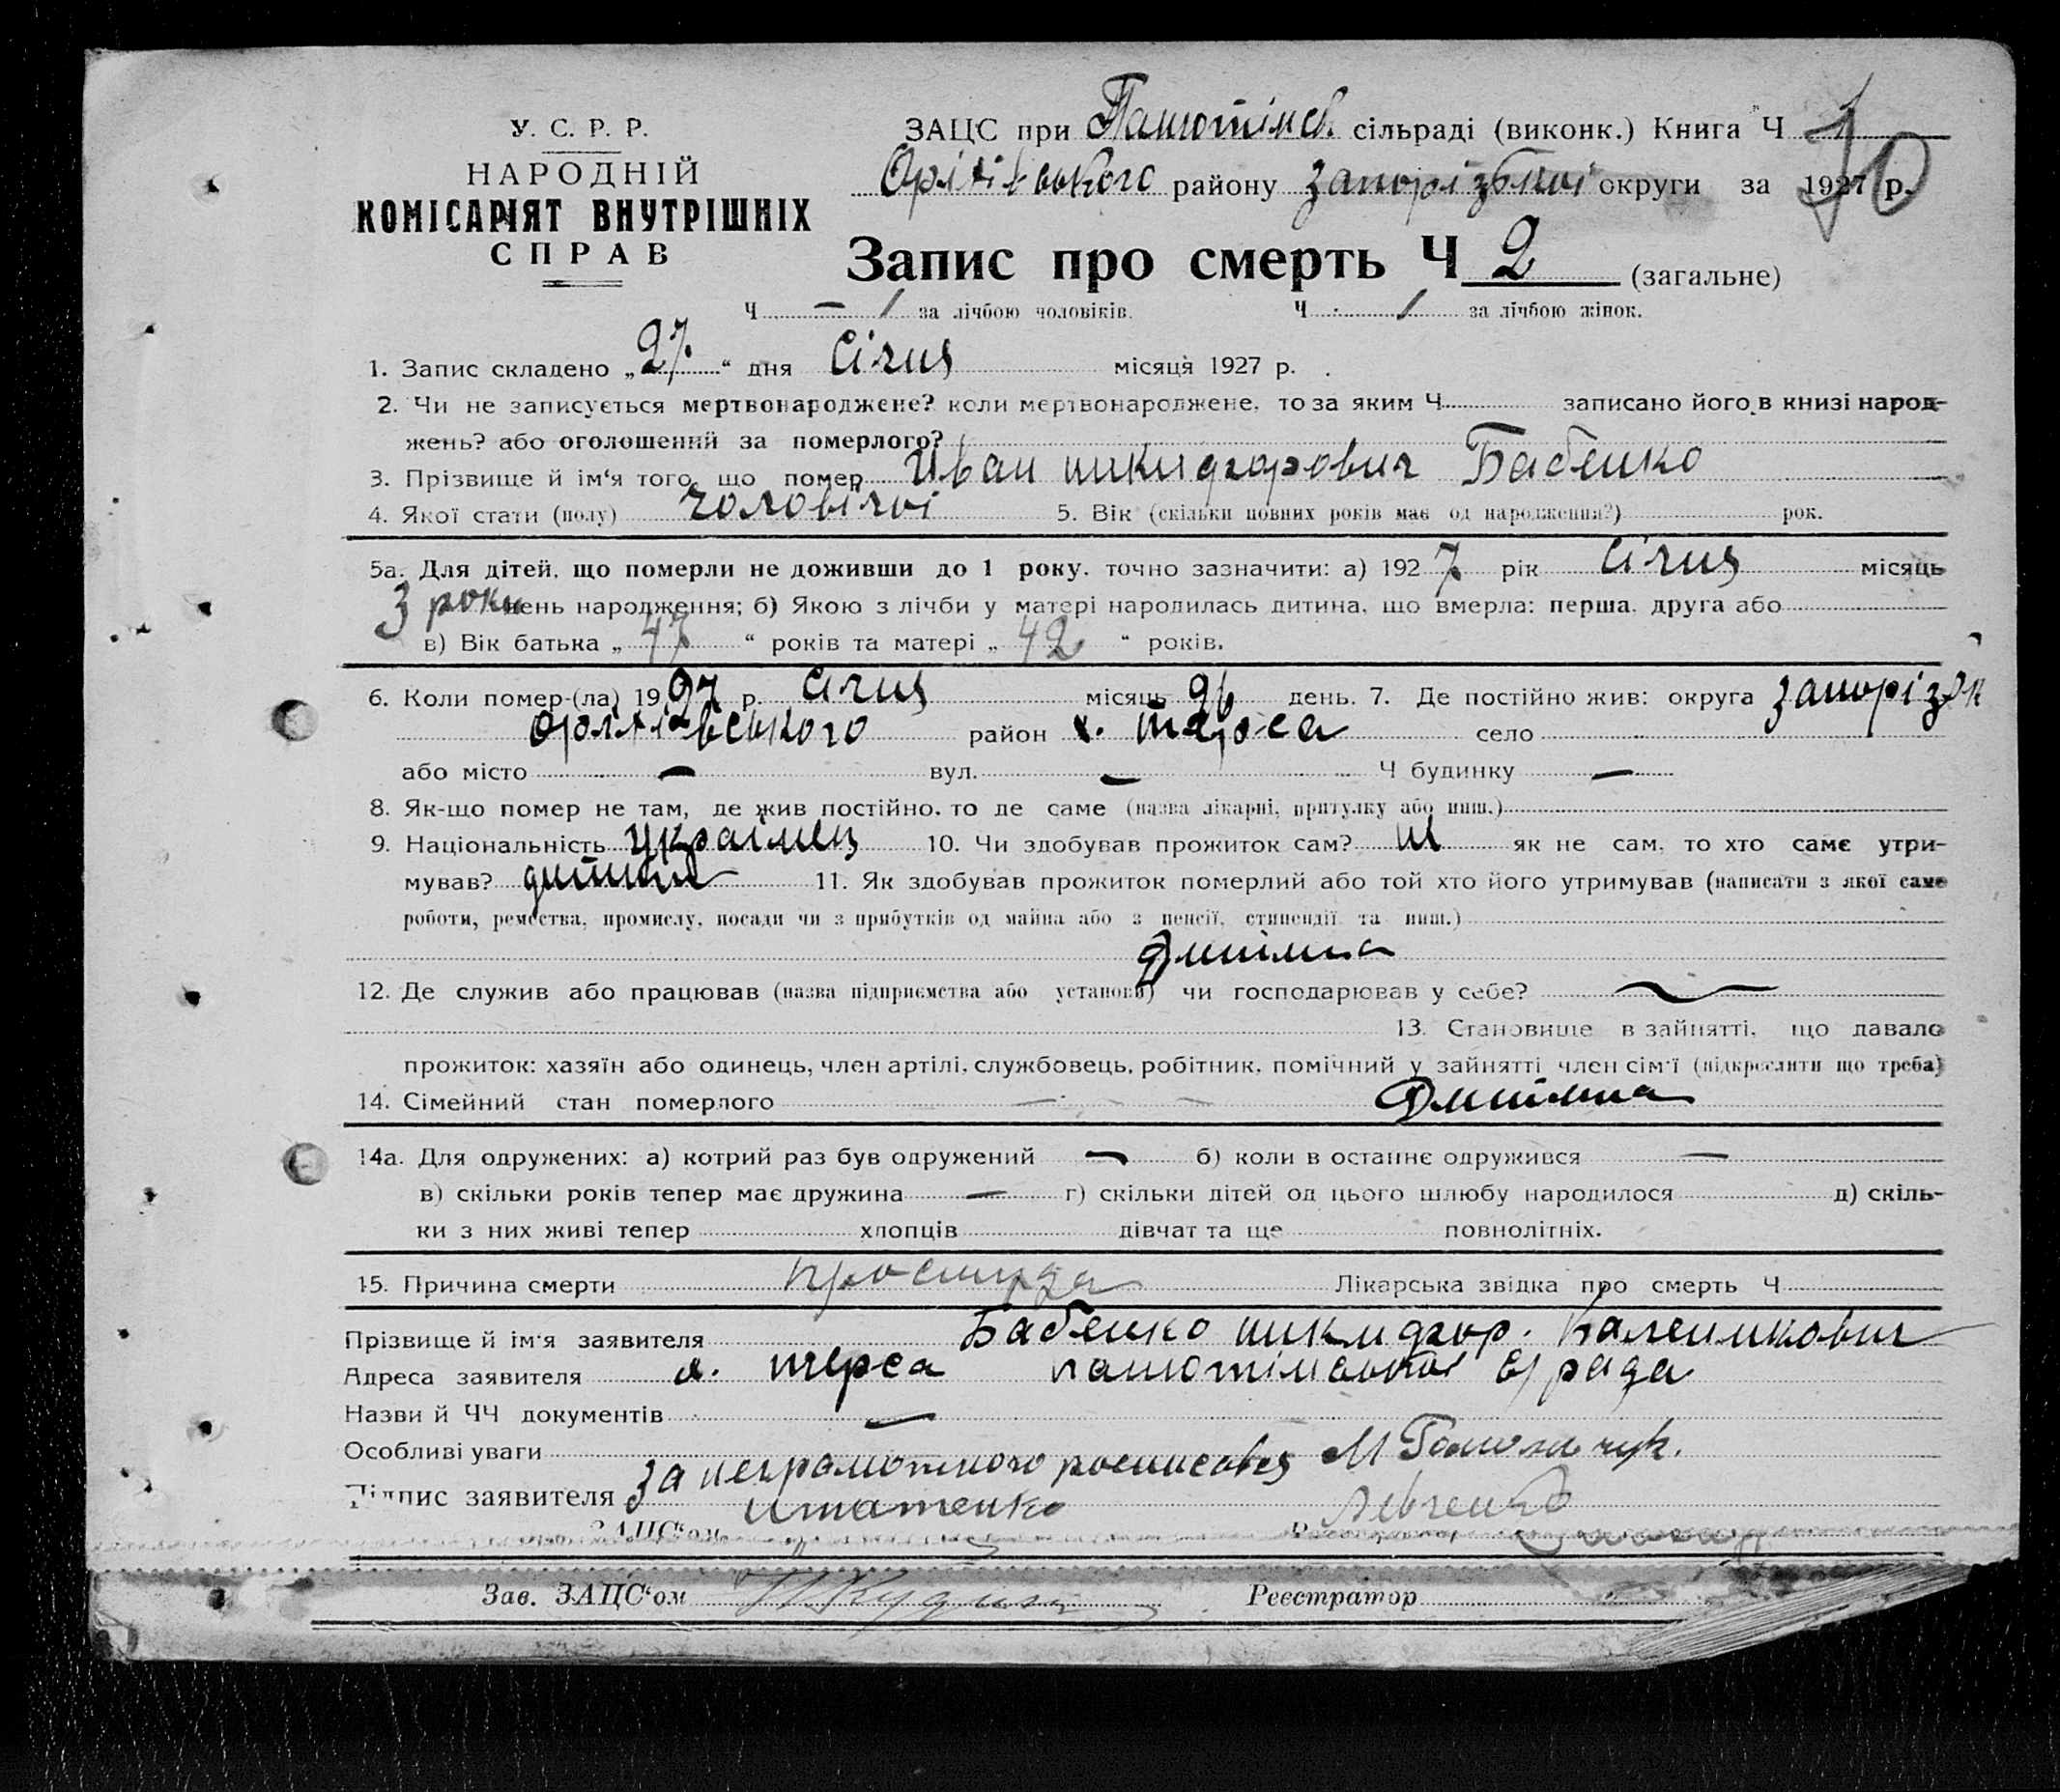 У. С. Р. Р.
НАРОДНІЙ
КОМІСАРІЯТ ВНУТРІШНІХ
СПРАВ
ЗАЦС при Панютінсь. сільраді (виконк.) Книга Ч 1
Оріхівського району Запорізької округи за 1927 р.
10
Запис про смерть Ч 2 (загальне)
Ч — 1 за лічбою чоловіків. Ч 1 за лічбою жінок.
1. Запис складено „27“ дня Січня місяця 1927 р.
2. Чи не записується мертвонароджене? коли мертвонароджене, то за яким Ч записано його в книзі народ-
жень? або оголошений за померлого?
3. Прізвище й ім'я того, що помер Иван никидхорович Бабенко
4. Якої стати (полу) чоловічої 5. Вік (скільки повних років має од народження?) рок.
5а. Для дітей, що померли не доживши до 1 року, точно зазначити: а) 1927 рік Січня місяць
3 роки день народження; б) Якою з лічби у матері народилась дитина, що вмерла: перша, друга або
в) Вік батька „47“ років та матері „42“ років.
6. Коли помер-(ла) 1927 р. січня місяць 26 день. 7. Де постійно жив: округа Запорізьк
Оріхівського район х. село
або місто — вул. — Ч будинку —
8. Як-що помер не там, де жив постійно, то де саме (назва лікарні, притулку або инш.)
9. Національність Українец 10. Чи здобував прожиток сам? ні як не сам, то хто саме утри-
мував? 11. Як здобував прожиток померлий або той хто його утримував (написати з якої саме
роботи, ремества, промислу, посади чи з прибутків од майна або з пенсії, стипендії та инш.)
Дитина
12. Де служив або працював (назва підприємства або установи) чи господарював у себе?
13. Становище в зайнятті, що давало
прожиток: хазяїн або одинець, член артілі, службовець, робітник, помічний у зайнятті член сім'ї (підкреслити що треба)
14. Сімейний стан померлого Дитина
14а. Для одружених: а) котрий раз був одружений — б) коли в останнє одружився —
в) скільки років тепер має дружина — г) скільки дітей од цього шлюбу народилося д) скіль-
ки з них живі тепер хлопців дівчат та ще повнолітніх.
15. Причина смерти простуда Лікарська звідка про смерть Ч
Прізвище й ім'я заявителя Бабенко никидхор.
Адреса заявителя х. терса панютінської с/рада
Назви й ЧЧ документів —
Особливі уваги
за неграмотного росписався М
Підпис заявителя Игнатенко Левченко
ЗАЦС'ом
Зав. ЗАЦС'ом Реєстратор